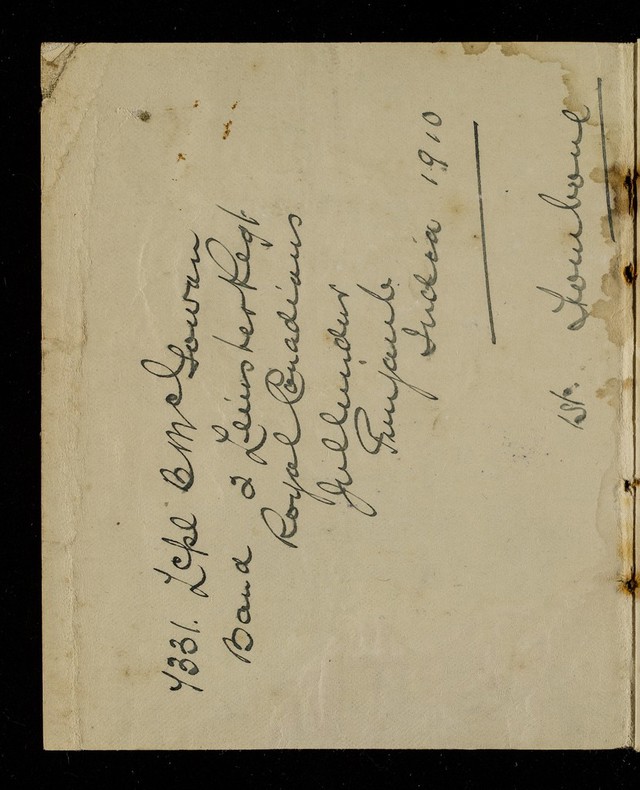 7331. Lcpl C McGowan
Band 2 Leinster Regt
Royal Canadians
Jullundur
Punjaub
India 1910
1st. Trombone